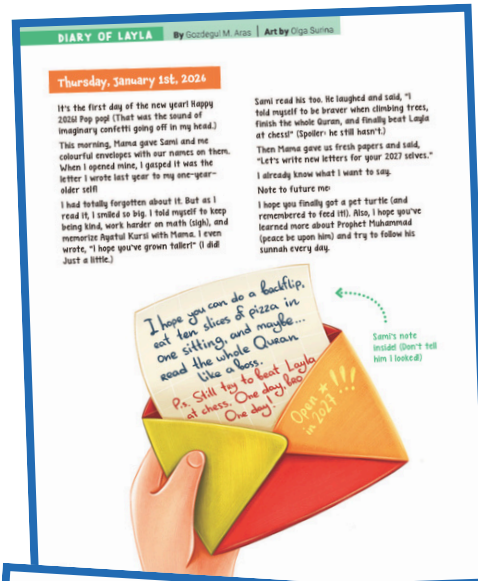 DIARY OF LAYLA
By Gozdegul M. Aras | Art by Olga Surina
Thursday, January 1st, 2026
It's the first day of the new year! Happy
2026! Pop pop! (That was the sound of
imaginary confetti going off in my head.)
This morning, Mama gave Sami and me
colourful envelopes with our names on them.
When I opened mine, I gasped it was the
letter I wrote last year to my one-year-
older self!
I had totally forgotten about it. But as I
read it, I smiled so big. I told myself to keep
being kind, work harder on math (sigh), and
memorize Ayatul Kursi with Mama. I even
wrote, "I hope you've grown taller!" (I did!
Just a little.)
Sami read his too. He laughed and said, "I
told myself to be braver when climbing trees,
finish the whole Quran, and finally beat Layla
at chess!" (Spoiler: he still hasn't.)
Then Mama gave us fresh papers and said,
"Let's write new letters for your 2027 selves."
I already know what I want to say.
Note to future me:
I hope you finally got a pet turtle (and
remembered to feed it!). Also, I hope you've
learned more about Prophet Muhammad
(peace be upon him) and try to follow his
sunnah every day.
I hope you can do a backflip,
eat ten slices of pizza in
one sitting, and maybe...
read the whole Quran
like a boss.
P.s. Still try to beat Layla
at chess. One day, bro
One day!
Open
in 2027 !!!
Sami's note
inside! (Don't tell
him I looked!)